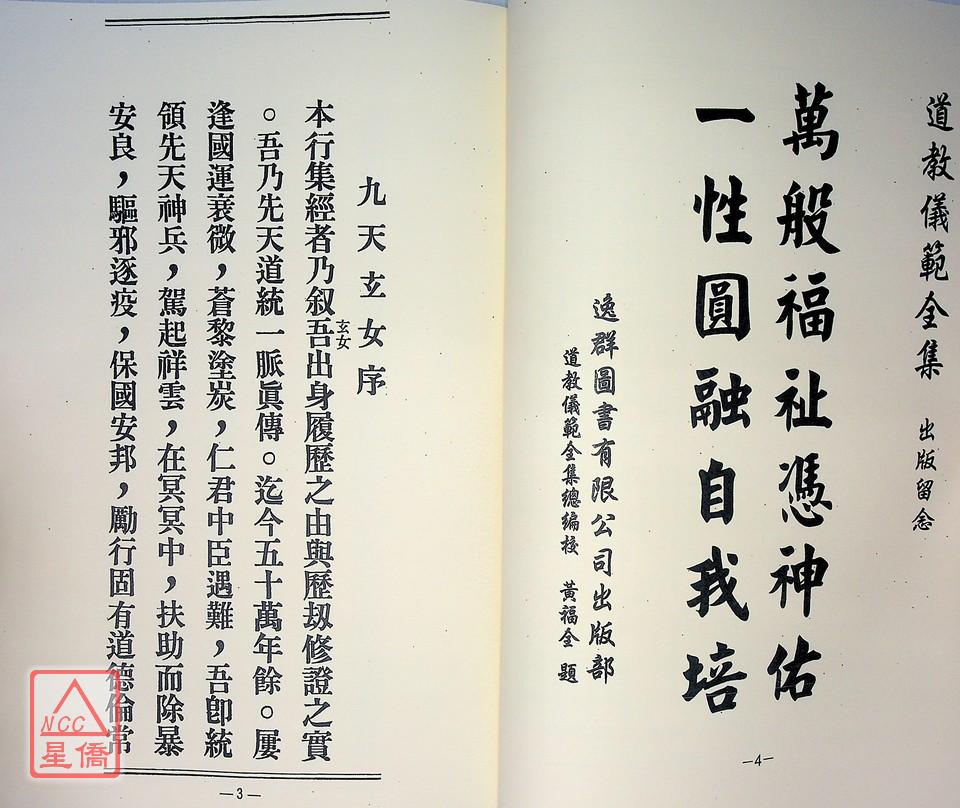 道教儀範全集　出版留念
萬般福祉憑神佑
一性圓融自我培
逸群圖書有限公司出版部
道教儀範全集總編校　黃福全　題
—4—
九天玄女序
本行集經者乃叙吾玄女出身履歷之由與歷刼修證之實
。吾乃先天道統一脈眞傳。迄今五十萬年餘。屢
逢國運衰微，蒼黎塗炭，仁君中臣遇難，吾卽統
領先天神兵，駕起祥雲，在冥冥中，扶助而除暴
安良，驅邪逐疫，保國安邦，勵行固有道德倫常
—3—
NCC
星僑